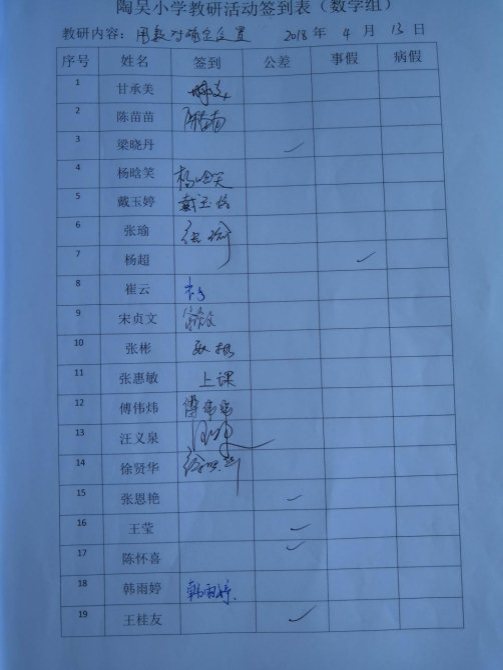 陶吴小学教研活动签到表（数学组）
教研内容：用数对确定位置 2018 年 4 月 13 日
序号 姓名 签到 公差 事假 病假
1 甘承美
2 陈苗苗 陈苗苗
3 梁晓丹 ✓
4 杨晗笑 杨晗笑
5 戴玉婷 戴玉婷
6 张瑜 张瑜
7 杨超 ✓
8 崔云
9 宋贞文
10 张彬 张彬
11 张惠敏 上课
12 傅伟炜 傅伟炜
13 汪义泉
14 徐贤华 徐贤华
15 张恩艳 ✓
16 王莹 ✓
17 陈怀喜 ✓
18 韩雨婷 韩雨婷
19 王桂友 ✓